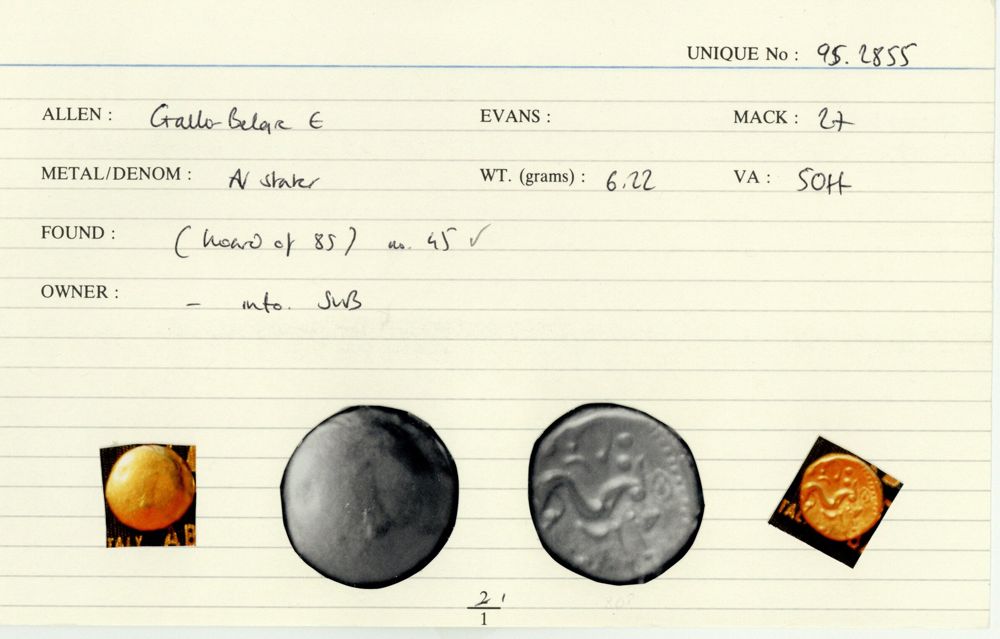 UNIQUE No : 95.2855
ALLEN : Gallo-Belgic E EVANS : MACK : 27
METAL/DENOM : AV stater WT. (grams) : 6.22 VA : 50++
FOUND : (hoard of 85) no. 45 ✓
OWNER : – info. SWB
TALY AB
TAL
2
1